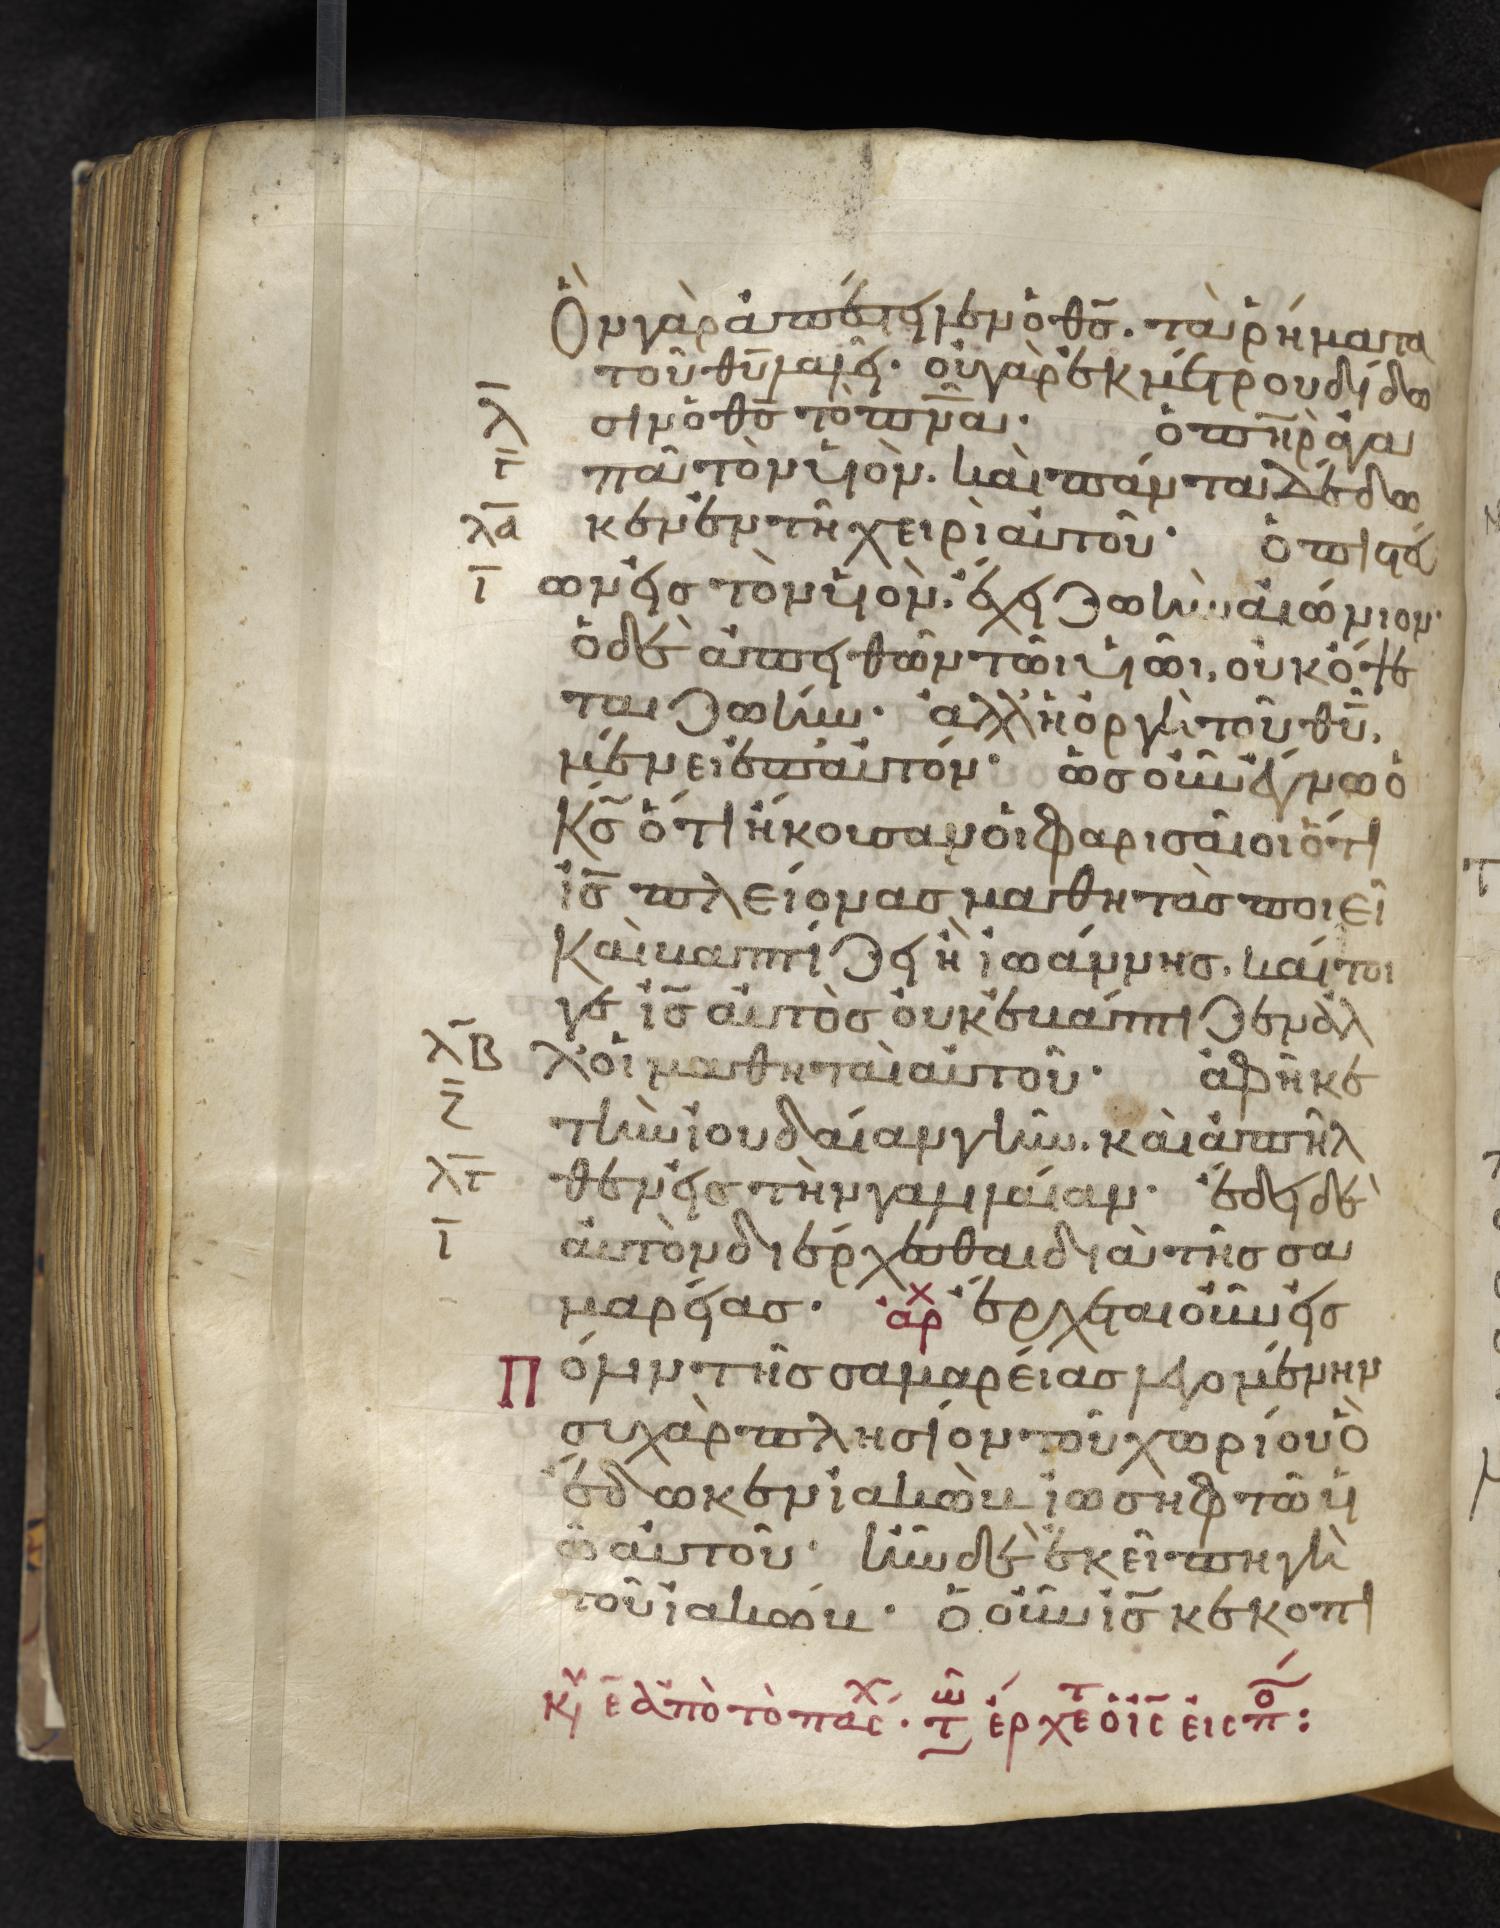 Ὃν γὰρ ἀπέστειλεν ὁ θς̄. τὰ ῥήματα
τοῦ θῡ λαλεῖ. οὐ γὰρ ἐκ μέτρου δίδω
λ̄ σιν ὁ θς̄ τὸ πν̄α. ὁ πη̄ρ ἀγα
γ̄ πᾶ τὸν υἱὸν. καὶ πάντα δέδω
λᾱ κεν ἐν τῆ χειρὶ αὐτοῦ. ὁ πιστεύ
ῑ ων εἰς τὸν υἱὸν. ἔχει ζωὴν αἰώνιον.
ὁ δὲ ἀπειθῶν τῶι υἱῶι, οὐκ ὄψε
ται ζωήν. ἀλλ' ἡ ὀργὴ τοῦ θῡ.
μένει ἐπ' αὐτόν. ὡς οὖν ἔγνω ὁ
κς̄ ὅτι ἤκουσαν οἱ φαρισαῖοι ὅτι
ις̄ πλείονας μαθητὰς ποιεῖ
καὶ βαπτίζει ἢ ἰωάννης. καίτοι
γε ις̄ αὐτὸς οὐκ ἐβάπτιζεν ἀλ
λ̄β λ' οἱ μαθηταὶ αὐτοῦ. ἀφῆκε
ζ̄ τὴν ἰουδαίαν γῆν. καὶ ἀπῆλ
λ̄γ θεν εἰς τὴν γαλιλαίαν. ἔδει δὲ
ῑ αὐτὸν διέρχεσθαι διὰ τῆς σα
μαρείας. ἀρχ ἔρχεται οὖν εἰς
πόλιν τῆς σαμαρείας λεγομένην
συχὰρ πλησίον τοῦ χωρίου ὃ
ἔδωκεν ἰακὼβ ἰωσὴφ τῶ υἱ
ῶ αὐτοῦ. ἦν δὲ ἐκεῖ πηγὴ
τοῦ ἰακώβ. ὁ οὖν ις̄ κεκοπι
κυ ε̄ ἀπὸ τὸ πασχ. τω ἔρχετ ὁ ις̄ εἰς πο: